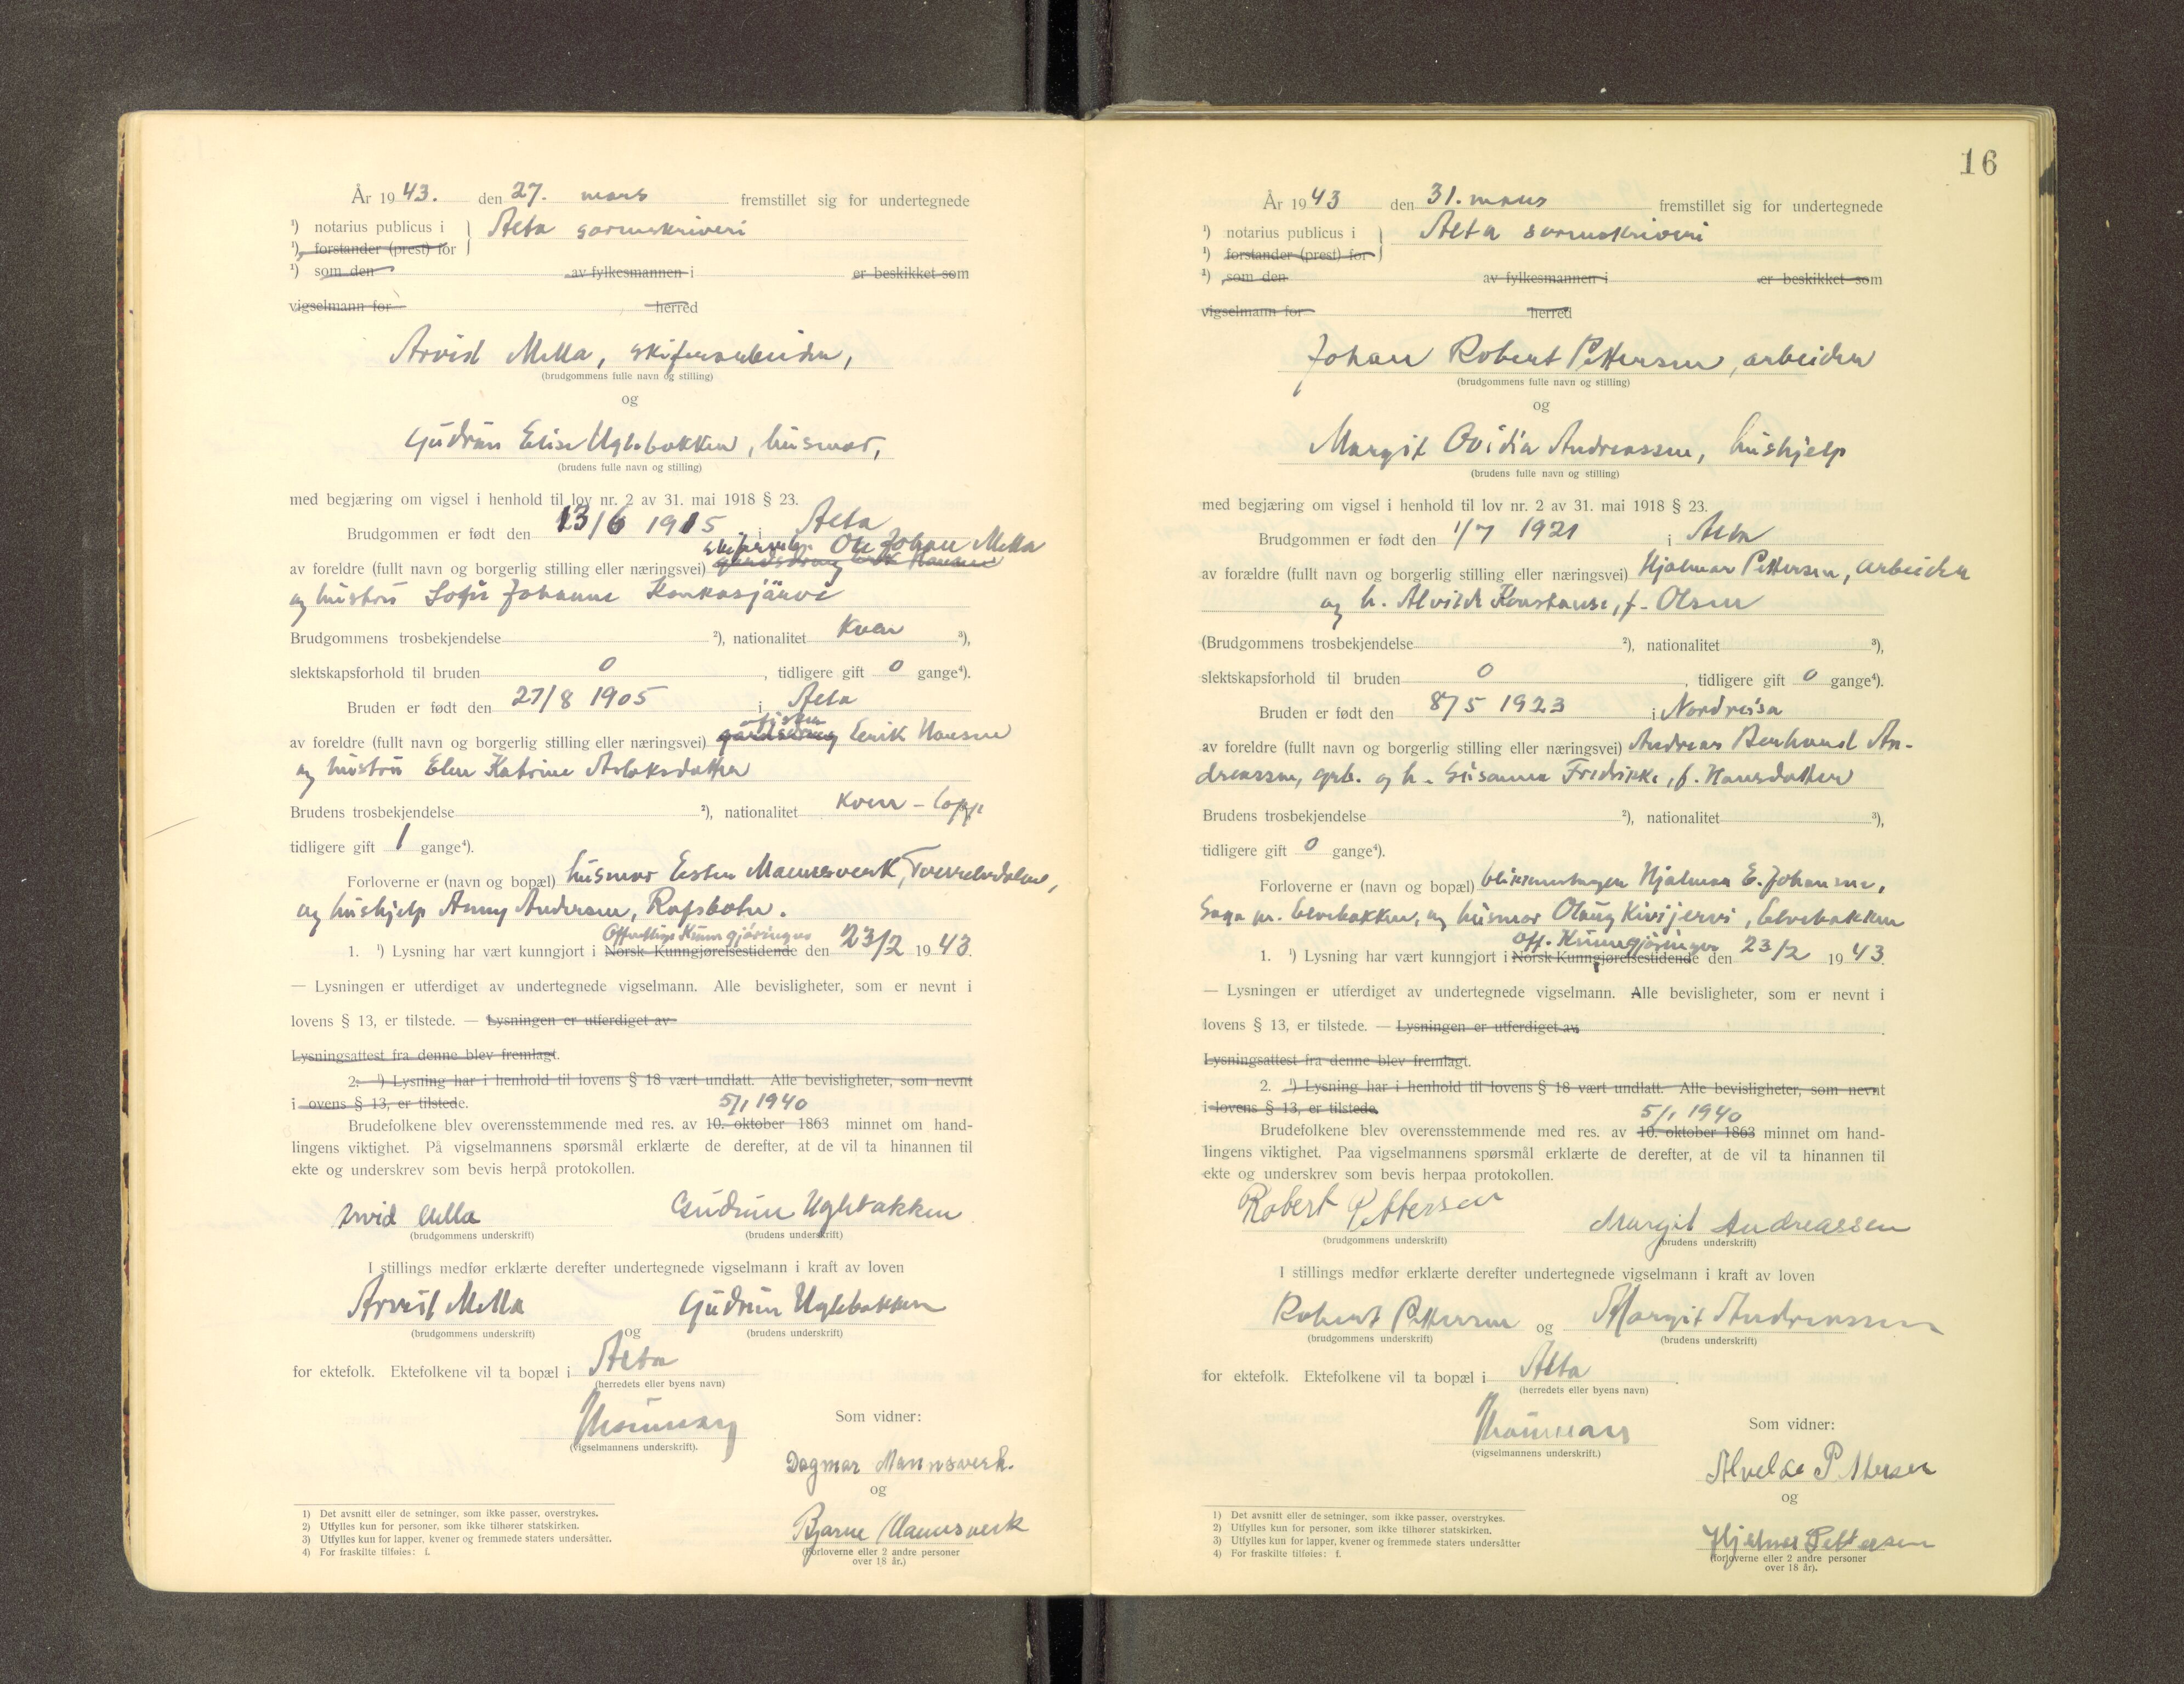 År 1943. den 27. mars fremstillet sig for undertegnede
¹) notarius publicus i } Alta sorenskriveri
¹) forstander (prest) for
¹) som den av fylkesmannen i er beskikket som
vigselmann for herred
Arvid Mella, skiferarbeider,
(brudgommens fulle navn og stilling)
og
Gudrun Elise Uglebakken, husmor,
(brudens fulle navn og stilling)
med begjæring om vigsel i henhold til lov nr. 2 av 31. mai 1918 § 23.
Brudgommen er født den 13/6 1915 i Alta
skiferarb. Ole Johan Mella
av foreldre (fullt navn og borgerlig stilling eller næringsvei) gårdsdreng Erik Hansen
og hustru Sofie Johanne Konkasjärvi
Brudgommens trosbekjendelse ²), nationalitet Kven ³),
slektskapsforhold til bruden 0, tidligere gift 0 gange⁴).
Bruden er født den 27/8 1905 i Alta
avfisker
av foreldre (fullt navn og borgerlig stilling eller næringsvei) gårdsdreng Eerik Hansen
og hustru Elen Katrine Aslaksdatter
Brudens trosbekjendelse ²), nationalitet Kven - lapp
tidligere gift 1 gange⁴).
Forloverne er (navn og bopæl) husmor Ester Mannsverk, Tverrelvdalen,
og hushjelp Anny Andersen, Rafsbotn.
Offentlige Kunngjøringer
1. ¹) Lysning har vært kunngjort i Norsk Kunngjørelsestidende den 23/2 1943.
— Lysningen er utferdiget av undertegnede vigselmann. Alle bevisligheter, som er nevnt i
lovens § 13, er tilstede. — Lysningen er utferdiget av
Lysningsattest fra denne blev fremlagt.
2. ¹) Lysning har i henhold til lovens § 18 vært undlatt. Alle bevisligheter, som nevnt
i ovens § 13, er tilstede.
5/1 1940
Brudefolkene blev overensstemmende med res. av 10. oktober 1863 minnet om hand-
lingens viktighet. På vigselmannens spørsmål erklærte de derefter, at de vil ta hinannen til
ekte og underskrev som bevis herpå protokollen.
Arvid Mella Gudrun Uglebakken
(brudgommens underskrift) (brudens underskrift)
I stillings medfør erklærte derefter undertegnede vigselmann i kraft av loven
Arvid Mella og Gudrun Uglebakken
(brudgommens underskrift) (brudens underskrift)
for ektefolk. Ektefolkene vil ta bopæl i Alta
(herredets eller byens navn)
(vigselmannens underskrift).
Som vidner:
Dagmar Mannsverk.
og
Bjarne Mannsverk
(Forloverne eller 2 andre personer
over 18 år.)
1) Det avsnitt eller de setninger, som ikke passer, overstrykes.
2) Utfylles kun for personer, som ikke tilhører statskirken.
3) Utfylles kun for lapper, kvener og fremmede staters undersåtter.
4) For fraskilte tilføies: f.
16
År 1943 den 31. mars fremstillet sig for undertegnede
¹) notarius publicus i } Alta sorenskriveri
¹) forstander (prest) for
¹) som den av fylkesmannen i er beskikket som
vigselmann for herred
Johan Robert Pettersen, arbeider
(brudgommens fulle navn og stilling)
og
Margit Ovidia Andreassen, hushjelp
(brudens fulle navn og stilling)
med begjæring om vigsel i henhold til lov nr. 2 av 31. mai 1918 § 23.
Brudgommen er født den 1/7 1921 i Alta
av forældre (fullt navn og borgerlig stilling eller næringsvei) Hjalmar Pettersen, arbeider
og h. Alvilde Konstanse, f. Olsen
(Brudgommens trosbekjendelse ²), nationalitet ³),
slektskapsforhold til bruden 0, tidligere gift 0 gange⁴).
Bruden er født den 8/5 1923 i Nordreisa
av foreldre (fullt navn og borgerlig stilling eller næringsvei) Andreas Berhard An-
dreassen, grb. og h. Susanna Fredrikke, f. Hansdatter
Brudens trosbekjendelse ²), nationalitet ³),
tidligere gift 0 gange⁴).
Forloverne er (navn og bopæl) blikkenslager Hjalmar E. Johansen,
Saga pr. Elvebakken, og husmor Olaug Kivijervi, Elvebakken
Off. Kunngjøringer
1. ¹) Lysning har vært kunngjort i Norsk Kunngjørelsestidende den 23/2 1943.
— Lysningen er utferdiget av undertegnede vigselmann. Alle bevisligheter, som er nevnt i
lovens § 13, er tilstede. — Lysningen er utferdiget av
Lysningsattest fra denne blev fremlagt.
2. ¹) Lysning har i henhold til lovens § 18 vært undlatt. Alle bevisligheter, som nevnt
i lovens § 13, er tilstede.
5/1 1940
Brudefolkene blev overensstemmende med res. av 10. oktober 1863 minnet om hand-
lingens viktighet. Paa vigselmannens spørsmål erklærte de derefter, at de vil ta hinannen til
ekte og underskrev som bevis herpaa protokollen.
Robert Pettersen Margit Andreassen
(brudgommens underskrift) (brudens underskrift)
I stillings medfør erklærte derefter undertegnede vigselmann i kraft av loven
Robert Pettersen og Margit Andreassen
(brudgommens underskrift) (brudens underskrift)
for ektefolk. Ektefolkene vil ta bopæl i Alta.
(herredets eller byens navn)
(vigselmannens underskrift.)
Som vidner:
Alvelde Pettersen
og
Hjelmer Pettersen
(forloverne eller 2 andre personer
over 18 år).
1) Det avsnitt eller de setninger, som ikke passer, overstrykes.
2) Utfylles kun for personer, som ikke tilhører statskirken.
3) Utfylles kun for lapper, kvener og fremmede staters undersåtter
4) For fraskilte tilføies: f.